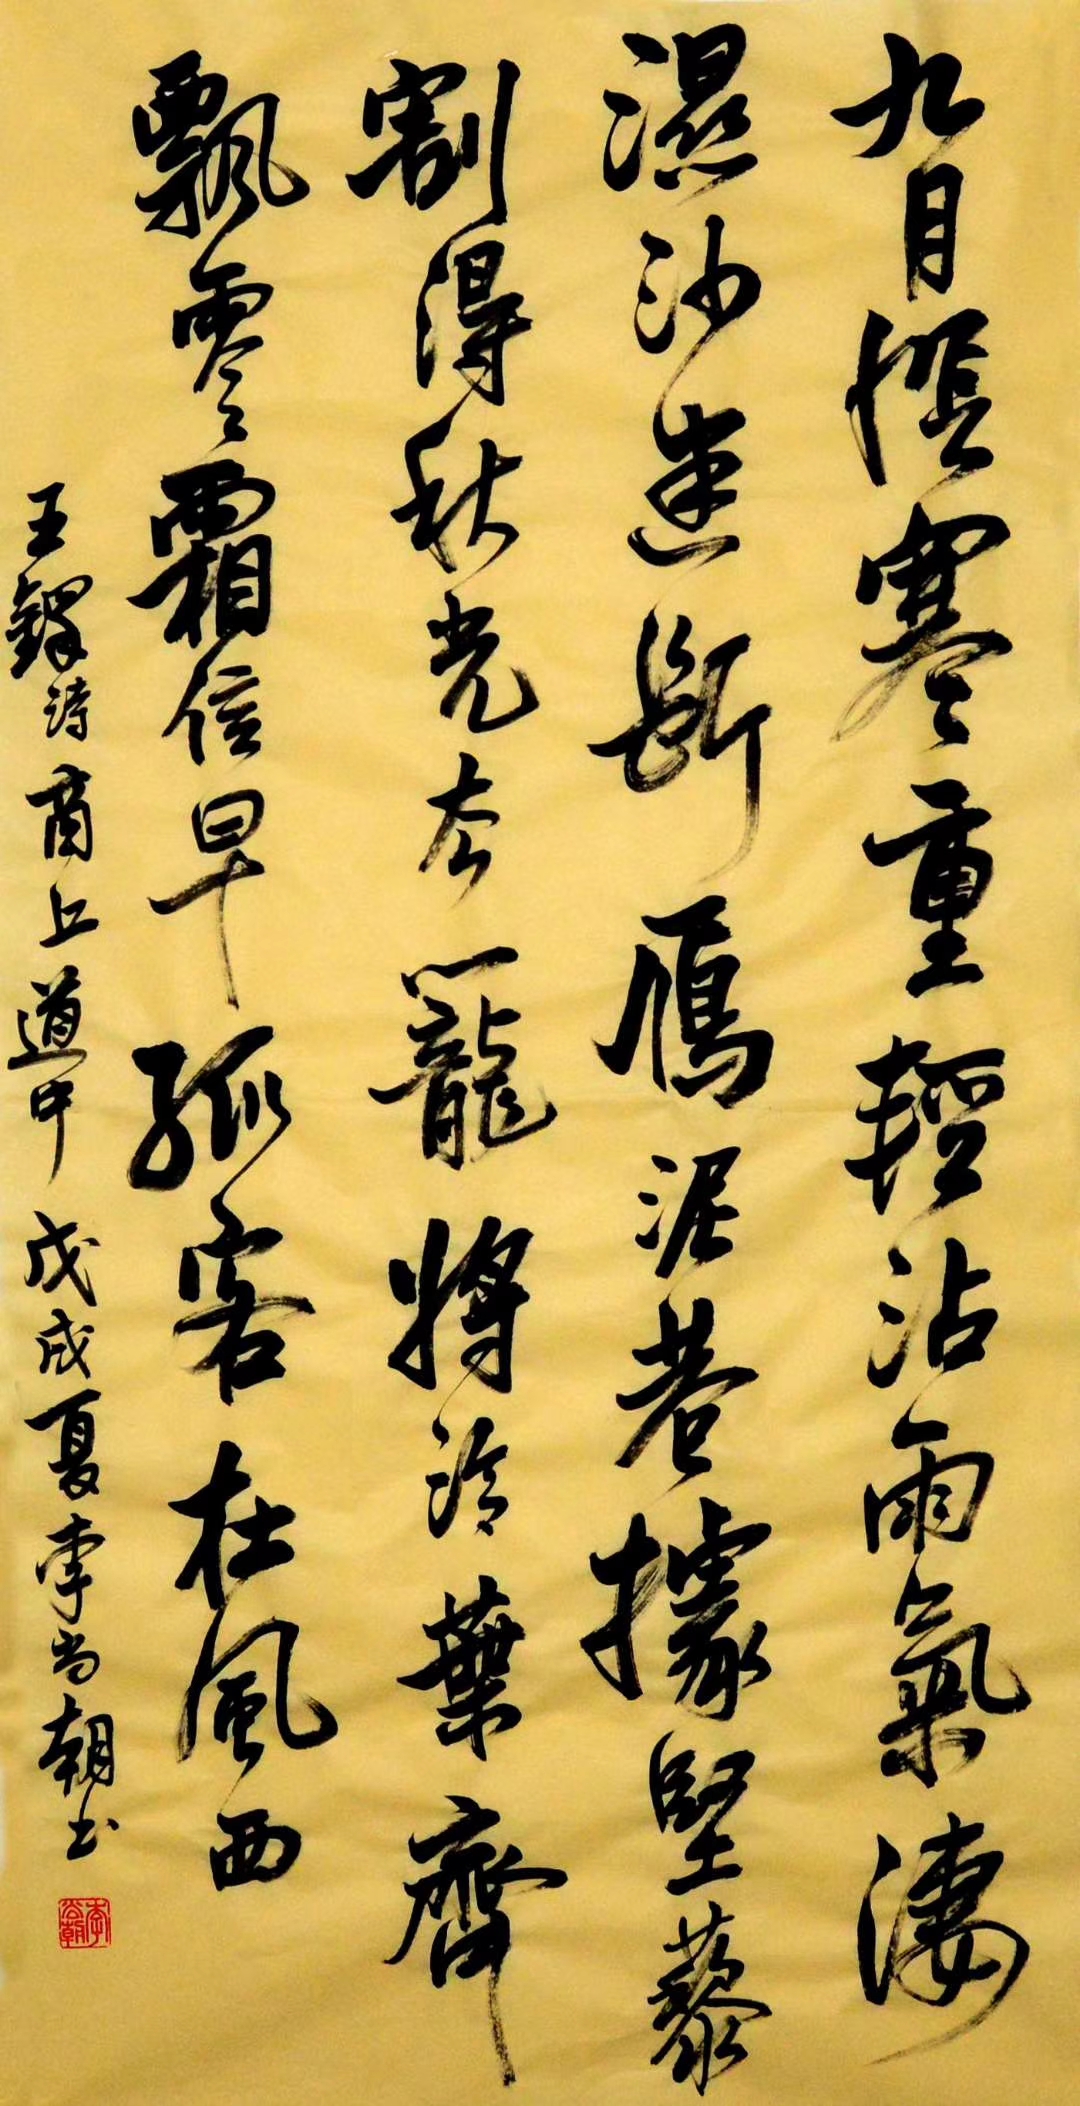 九月寒重輕沾雨氣淒
濕沙迷斷雁泥巷據堅藜
割得秋光去籠將冷葉齊
飄零霜信早孤客在風西
王鐸詩商丘道中 戊戌夏李尚朝书
李尚朝